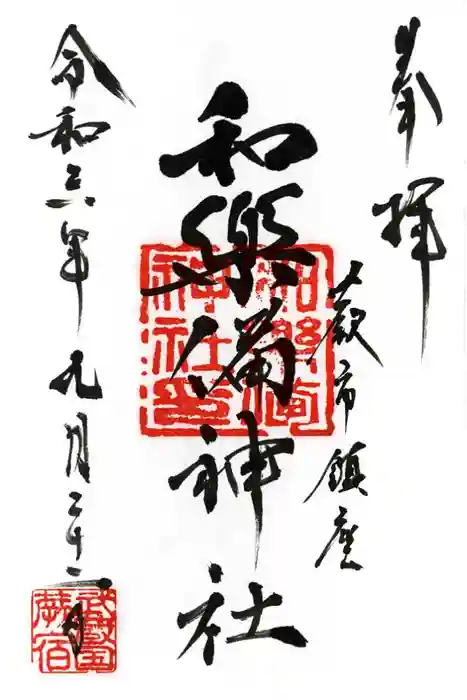 奉拝
蕨市鎮座
和樂備神社
和樂備
神社印
令和六年九月二十二日
武蔵国
蕨宿